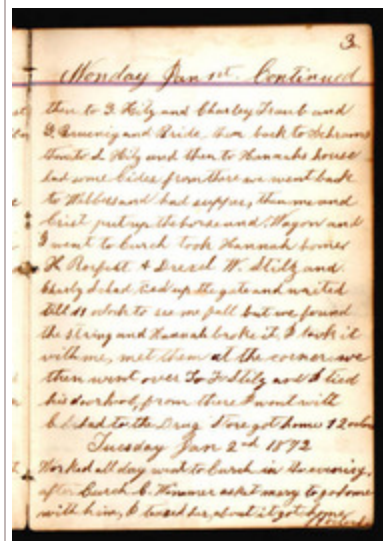 3
Monday Jan 1st Continued
then to G. Hilz and Charley Traub and
G. and Bride, then back to Schrams
then to L Hilz and then to Hannahs house
had some Cider from there we went back
to and had supper, then me and
Crist put up the horse and Wagon and
I went to Curch took Hannah home
H Rerfest & Drexel W. Stilz and
Charly Schad tied up the gate and waited
till 11 oclock to see me fall but we found
the string and Hannah broke it, I took it
with me, met them at the corner we
then went over To F Stilz and I tied
his doorknob, from there I went with
C. Schad to the Drug Store got home 12 oclock
Tuesday Jan 2nd 1892
Worked all day went to Curch in the evening,
after Curch C. askt mary to go home
with him, I teased her, about it got home